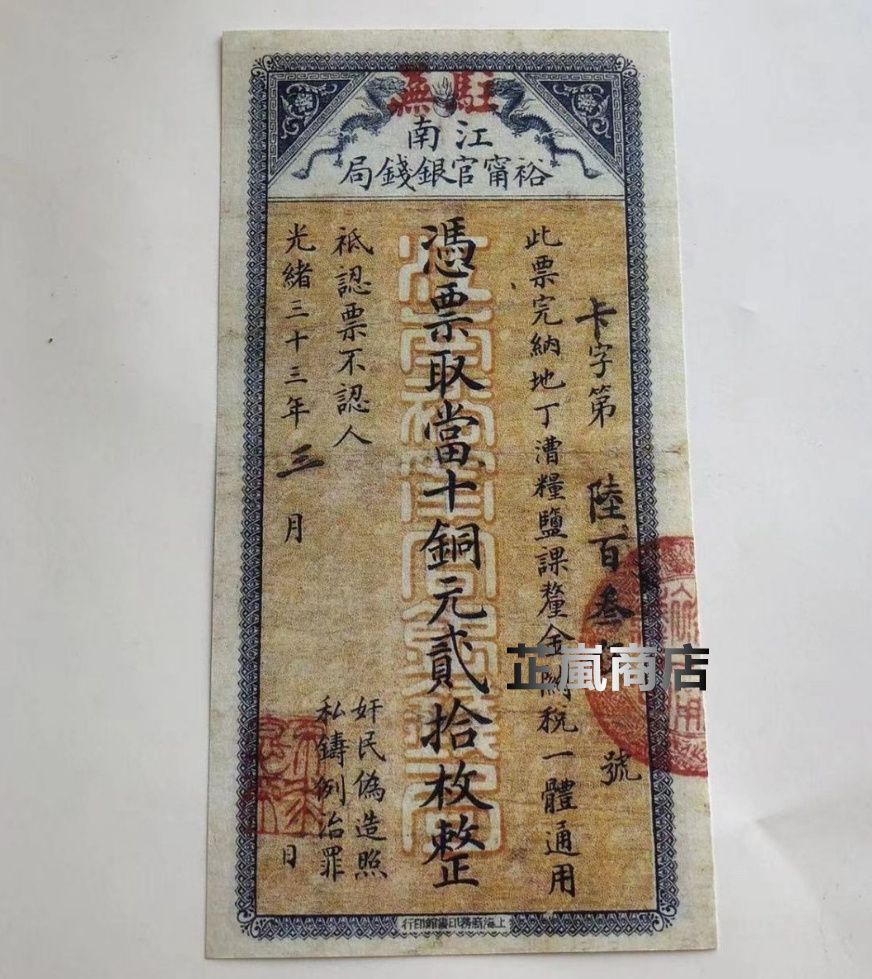 駐蕪
江南
裕甯官銀錢局
卡字第陸百叁號
此票完納地丁漕糧鹽課釐金關稅一體通用
憑票取當十銅元貳拾枚整
祗認票不認人
奸民偽造照
私鑄例治罪
光緒三十三年三月日
上海商務印書館印行
芷嵐商店